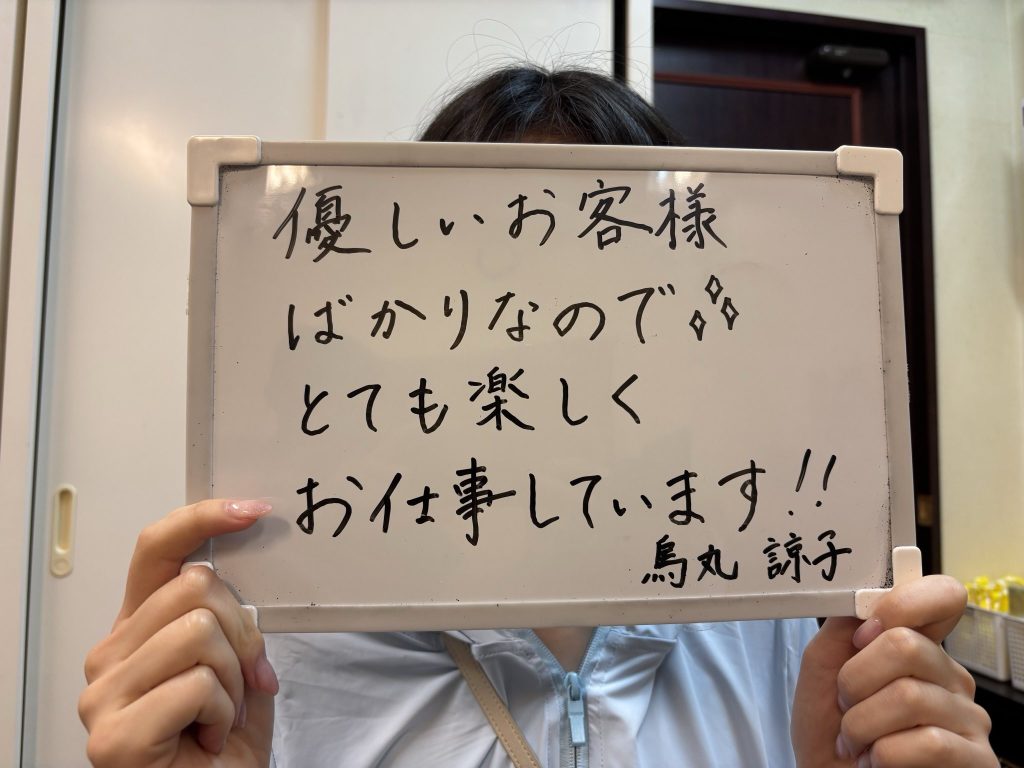 優しいお客様
ばかりなので
とても楽しく
お仕事しています!!
烏丸 諒子